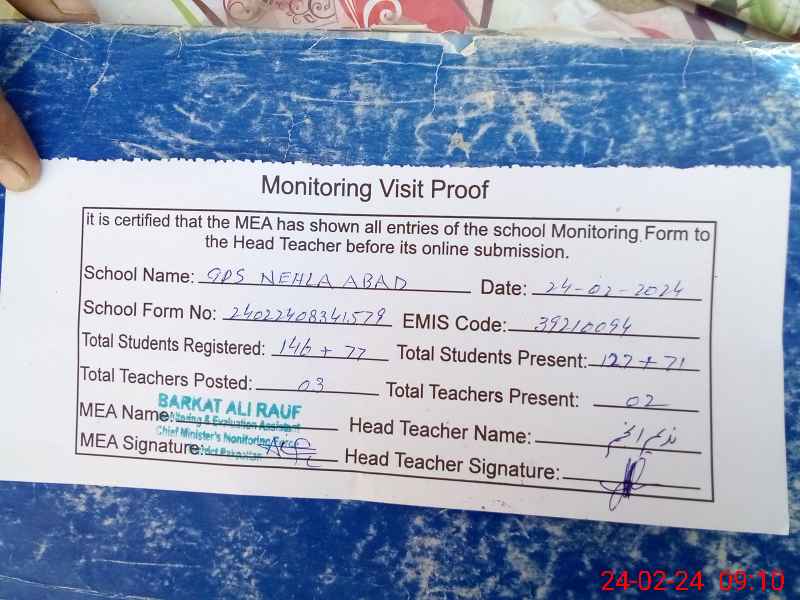 Monitoring Visit Proof
it is certified that the MEA has shown all entries of the school Monitoring Form to
the Head Teacher before its online submission.
School Name: GPS NEHLA ABAD Date: 24-02-2024
School Form No: 24022408341579 EMIS Code: 39210094
Total Students Registered: 146 + 77 Total Students Present: 127 + 71
Total Teachers Posted: 03 Total Teachers Present: 02
BARKAT ALI RAUF
MEA Name: Monitoring & Evaluation Assistant Head Teacher Name:
Chief Minister's Monitoring Force
MEA Signature: District Pakpattan Head Teacher Signature:
24-02-24 09:10